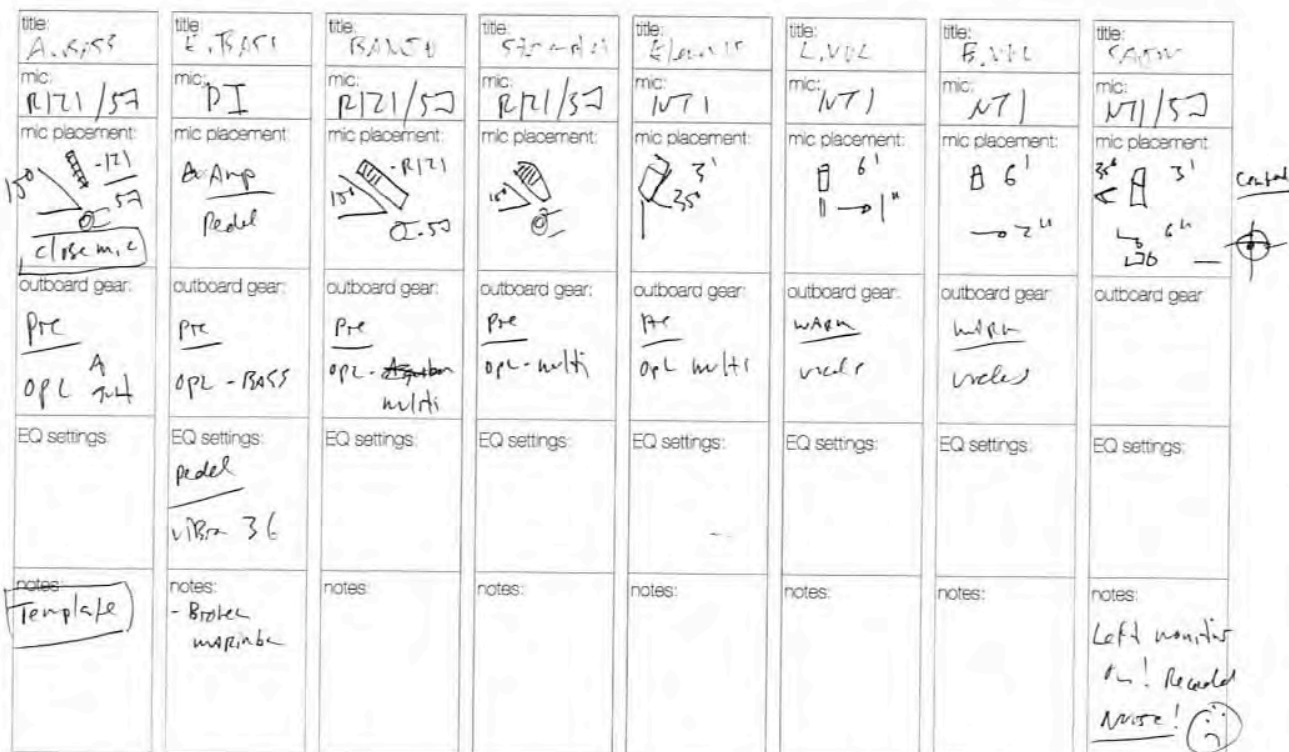 title: A. BASS
mic: R121/57
mic placement:
10° -121
57
close mic
outboard gear:
Pre
OPL A
EQ settings:
notes:
Template
title: E. BASS
mic: DI
mic placement:
Amp
Pedel
outboard gear:
Pre
OPL - BASS
EQ settings:
pedel
viBra 36
notes:
- Broken
mARimba
title: BANJO
mic: R121/57
mic placement:
10° -R121
57
outboard gear:
Pre
OPL -
multi
EQ settings:
notes:
title:
mic: R121/57
mic placement:
10°
outboard gear:
Pre
OPL - multi
EQ settings:
notes:
title:
mic: NT1
mic placement:
3'
35°
outboard gear:
Pre
OPL multi
EQ settings:
notes:
title: L. VOL
mic: NT1
mic placement:
6'
1"
outboard gear:
wARM
EQ settings:
notes:
title: B. VOL
mic: NT1
mic placement:
6'
2"
outboard gear:
wARM
EQ settings:
notes:
title:
mic: NT1/57
mic placement:
35° 3'
6"
outboard gear:
EQ settings:
notes:
Left monitor
on! Recorded
Noise!